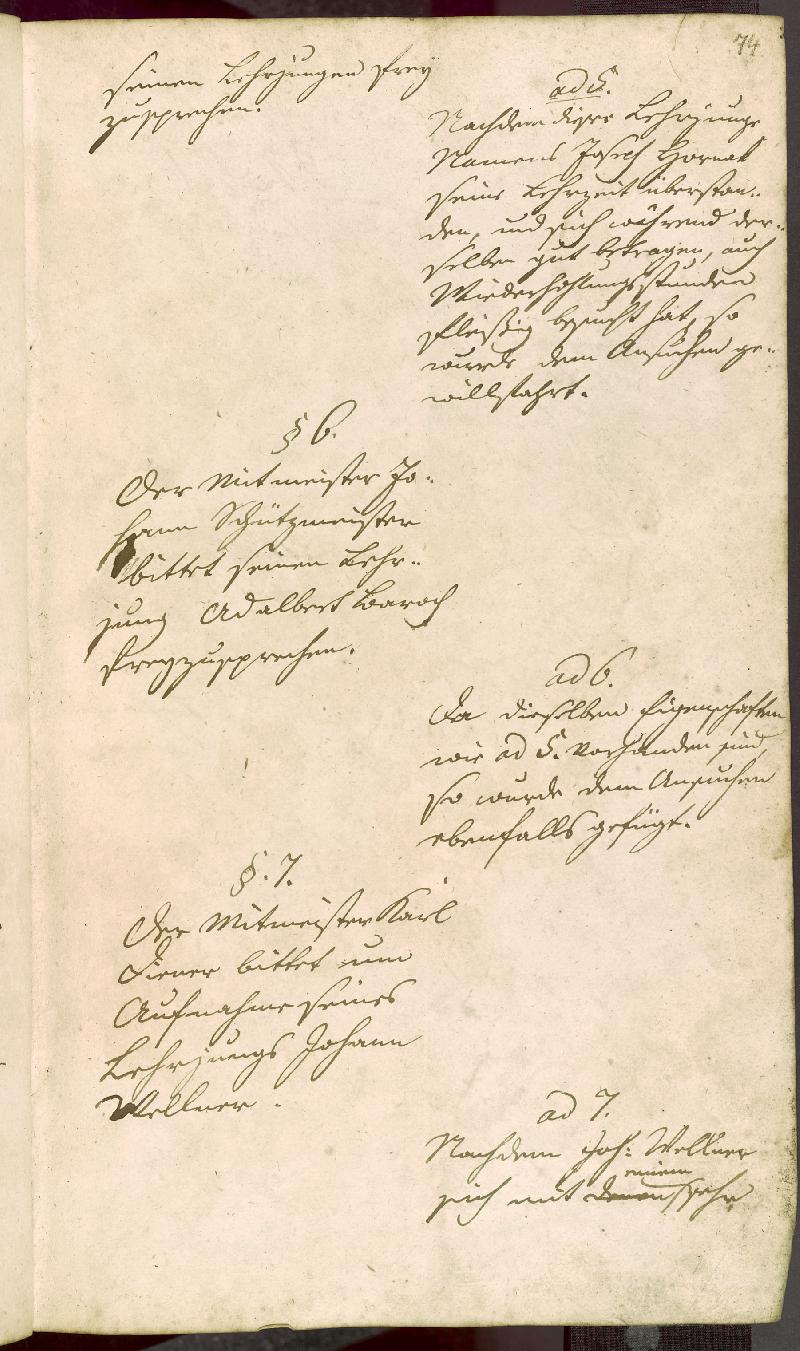 74
seinen Lehrjungen frey
zusprechen.
ad 5.
Nachdem dieser Lehrjunge
Namens Joseph Hornak
seine Lehrzeit überstan-
den, und sich während der-
selben gut betragen, auch
Wiederhohlungsstunden
fleißig besucht hat, so
wurde dem Ansuchen ge-
willfahrt.
§ 6.
Der Mitmeister Jo-
hann Schützmeister
bittet seinen Lehr-
jung Adalbert Baroch
freyzusprechen.
ad 6.
Da dieselben Eigenschaften
wie ad 5. vorhanden sind,
so wurde dem Ansuchen
ebenfalls gefügt.
§. 7.
Der Mitmeister Karl
Diener bittet um
Aufnahme seines
Lehrjungs Johann
Wellner.
ad 7.
Nachdem Joh: Wellner
einem
sich mit sehr